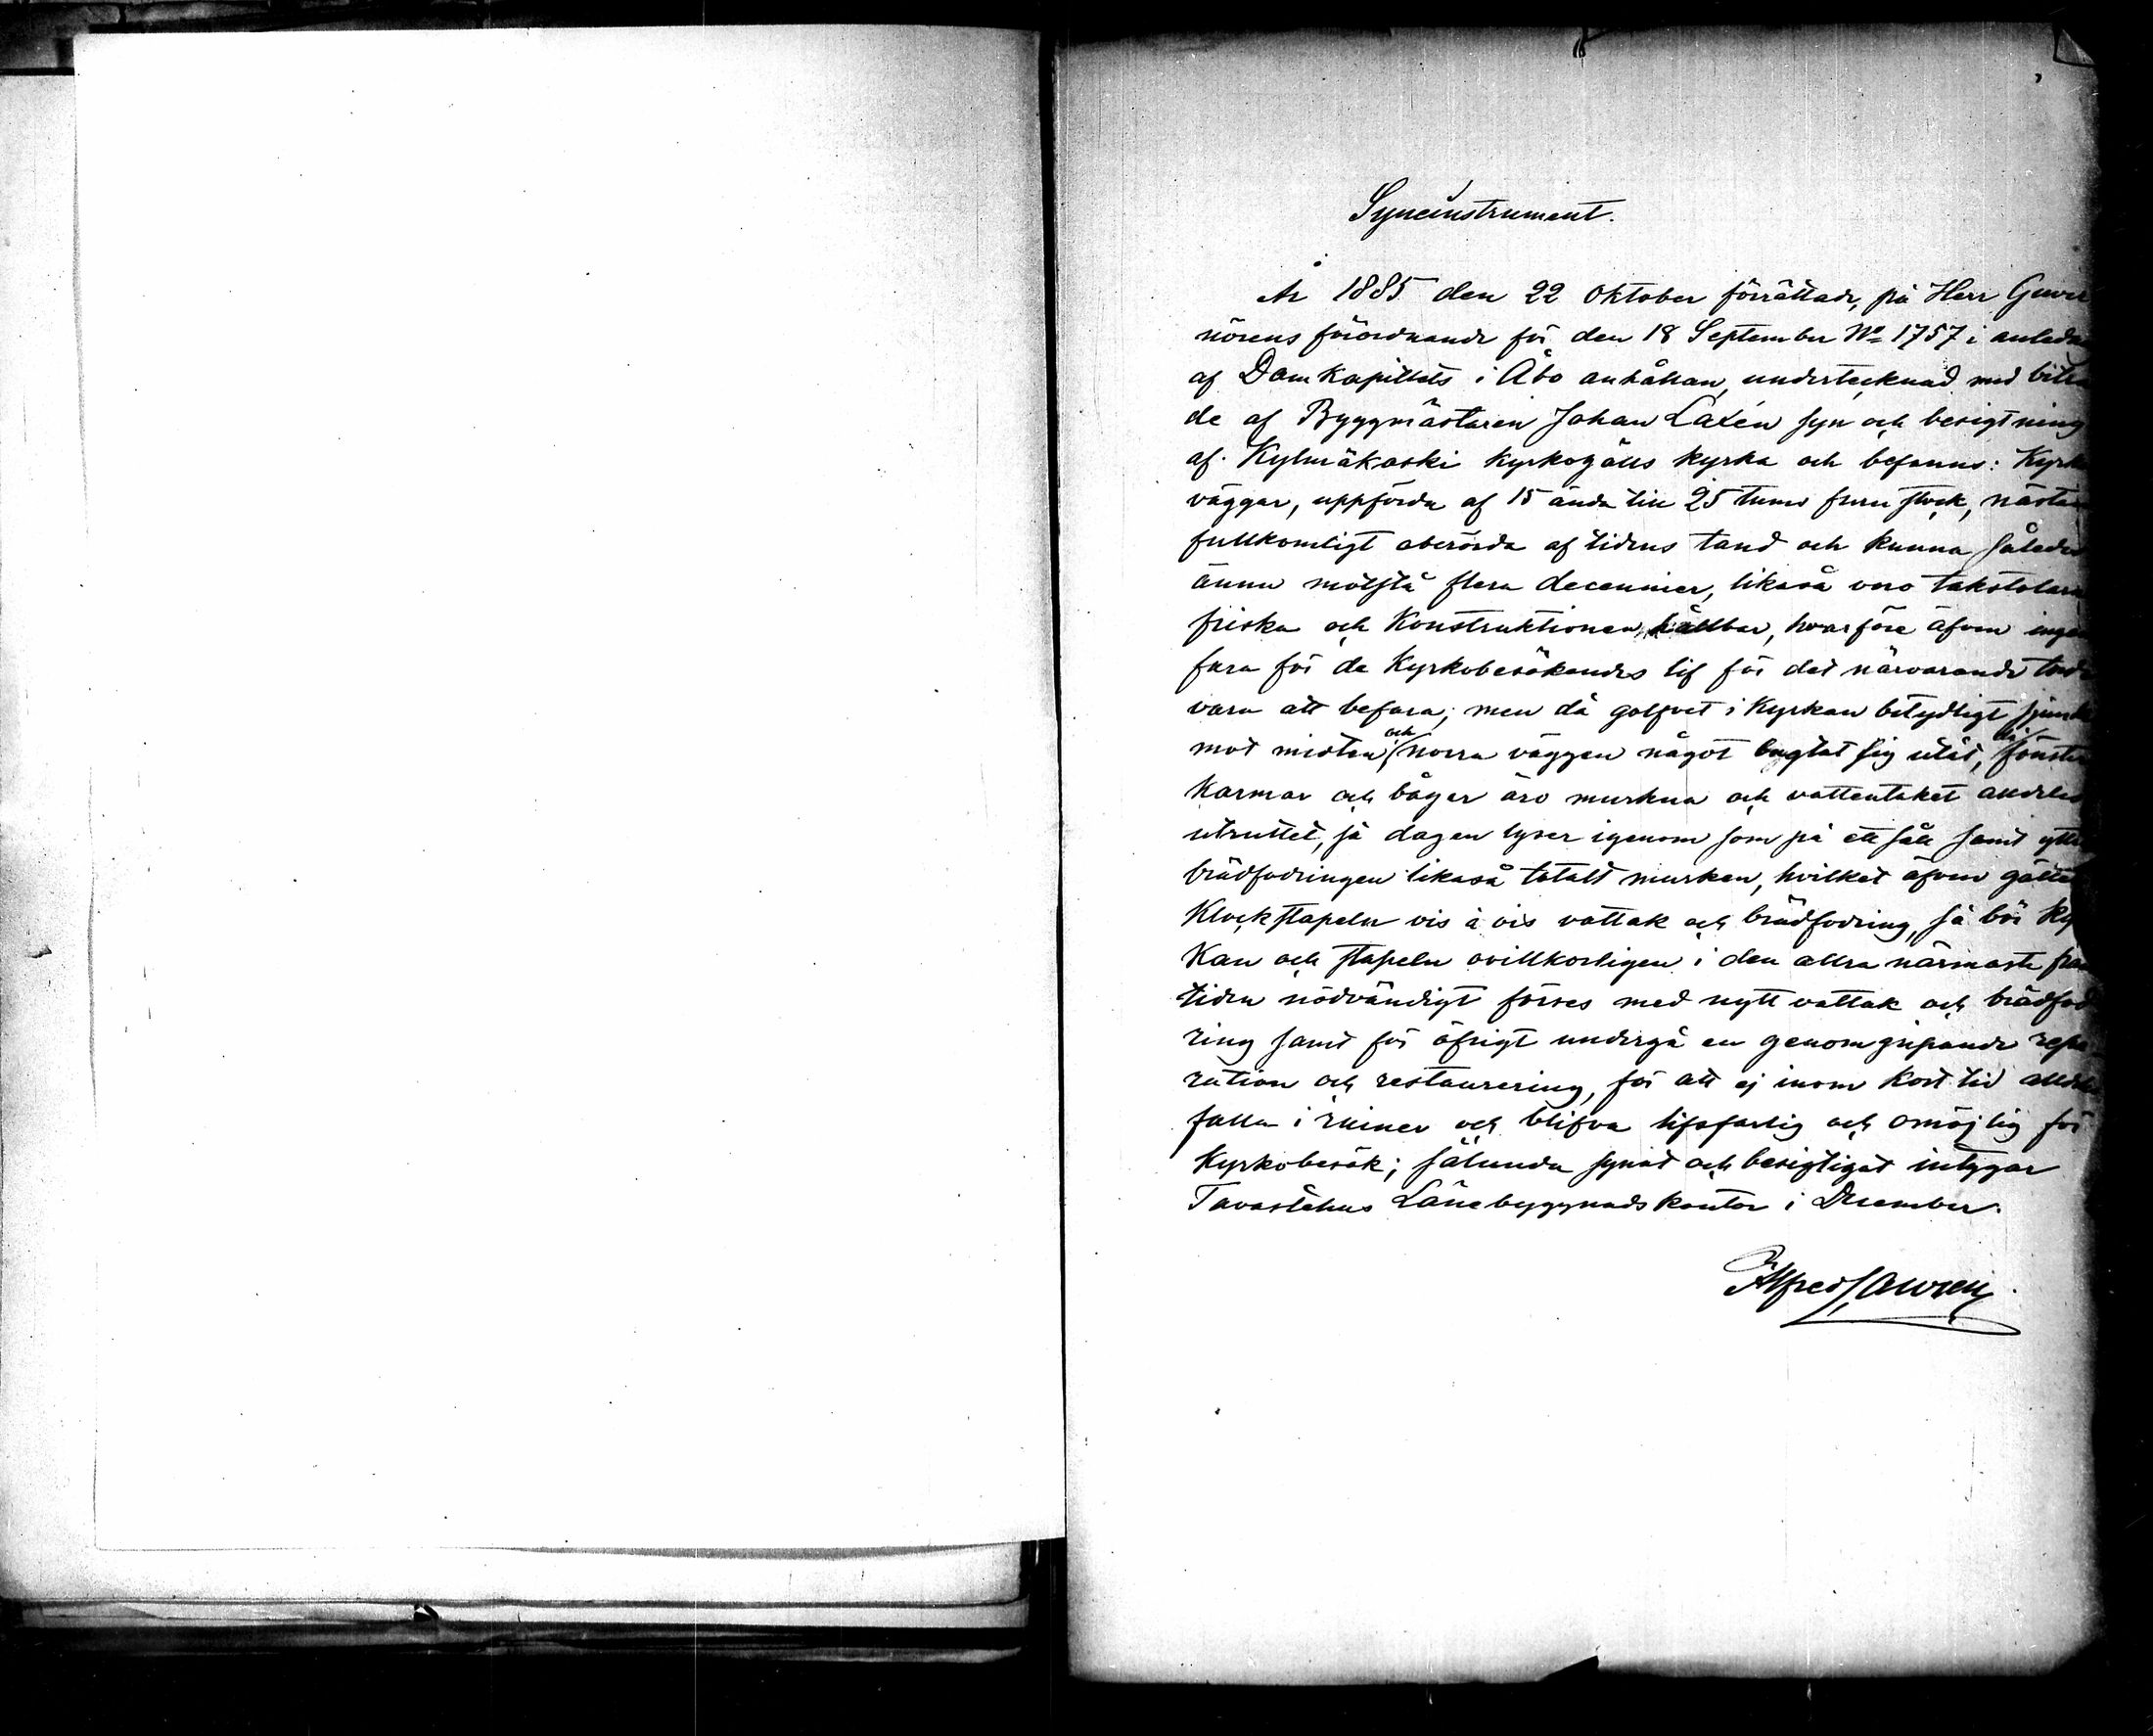 Syneinstrument.
År 1885 den 22 Oktober förrättade, på Herr Guver
nörens förordnande för den 18 September No 1757 i anledn
af Domkapitlets i Åbo anhållan, undertecknad med biträ
de af Byggmästaren Johan Laxén syn och besigtning
af Kylmäkoski kyrkogälls kyrka och befanns: Kyrk
väggar, uppförda af 15 ända till 25 tums furu stock, nästan
fullkomligt oberörda af tidens tand och kunna således
ännu motstå flera decennier, likaså voro takstolarne
friska och Konstruktionen hållbar, hvarföre äfven ingen
fara för de Kyrkobesökandes lif för det närvarande torde
vara att befara; men då golfvet i Kyrkan betydligt sjunkit
mot midten, och norra väggen något bugtat sig utåt, fönster
karmar och bågar äro murkna och vattentaket alldeles
utruttet, så dagen lyser igenom som på ett såll samt yttre
brädfodringen likaså totalt murken, hvilket äfven gäller
Klockstapeln vis à vis vattak och brädfodring, så bör Kyr
kan och stapeln ovillkorligen i den allra närmaste fram
tiden nödvändigt förses med nytt vattak och brädfod
ring samt för öfrigt undergå en genomgripande repa
ration och restaurering, för att ej inom kort tid alldeles
falla i ruiner och blifva lifsfarlig och omöjlig för
Kyrkobesök; sålunda synat och besigtigat intygar
Tavastehus Länebyggnadskontor i December.
Alfred